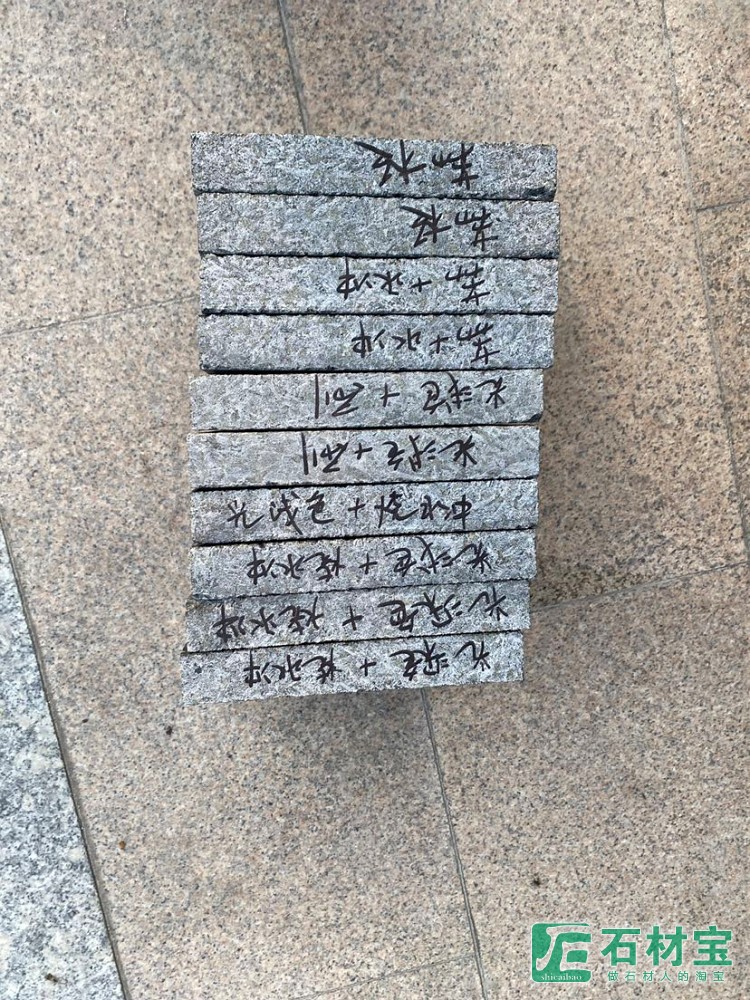 光深色+烧水冲
光深色+烧水冲
光浅色+烧水冲
光浅色+烧水冲
光深色+
光浅色+
荔+水冲
荔+水冲
荔枝
荔枝
石材宝
shicaibao
做石材人的淘宝